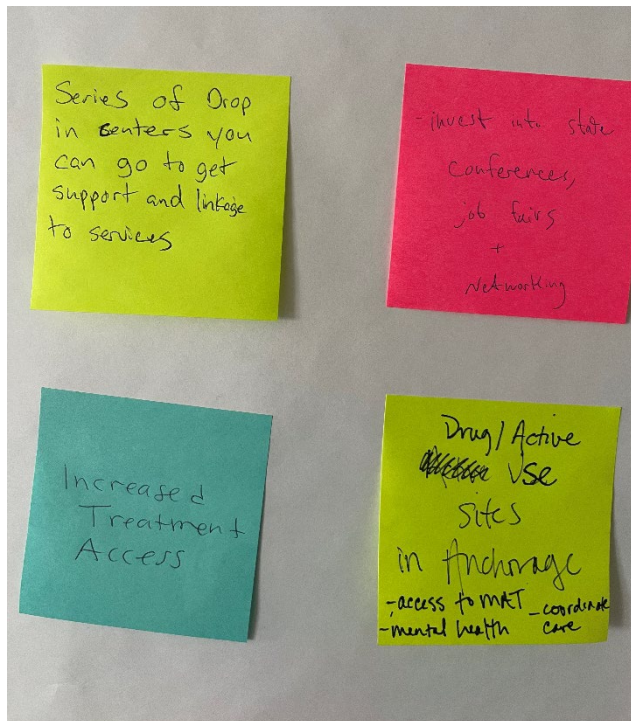 Series of Drop
in centers you
can go to get
support and linkage
to services
- invest into state
conferences,
job fairs
+
Networking
Increased
Treatment
Access
Drug/Active
Use
Sites
in Anchorage
- access to MAT
- mental health
- coordinate
care